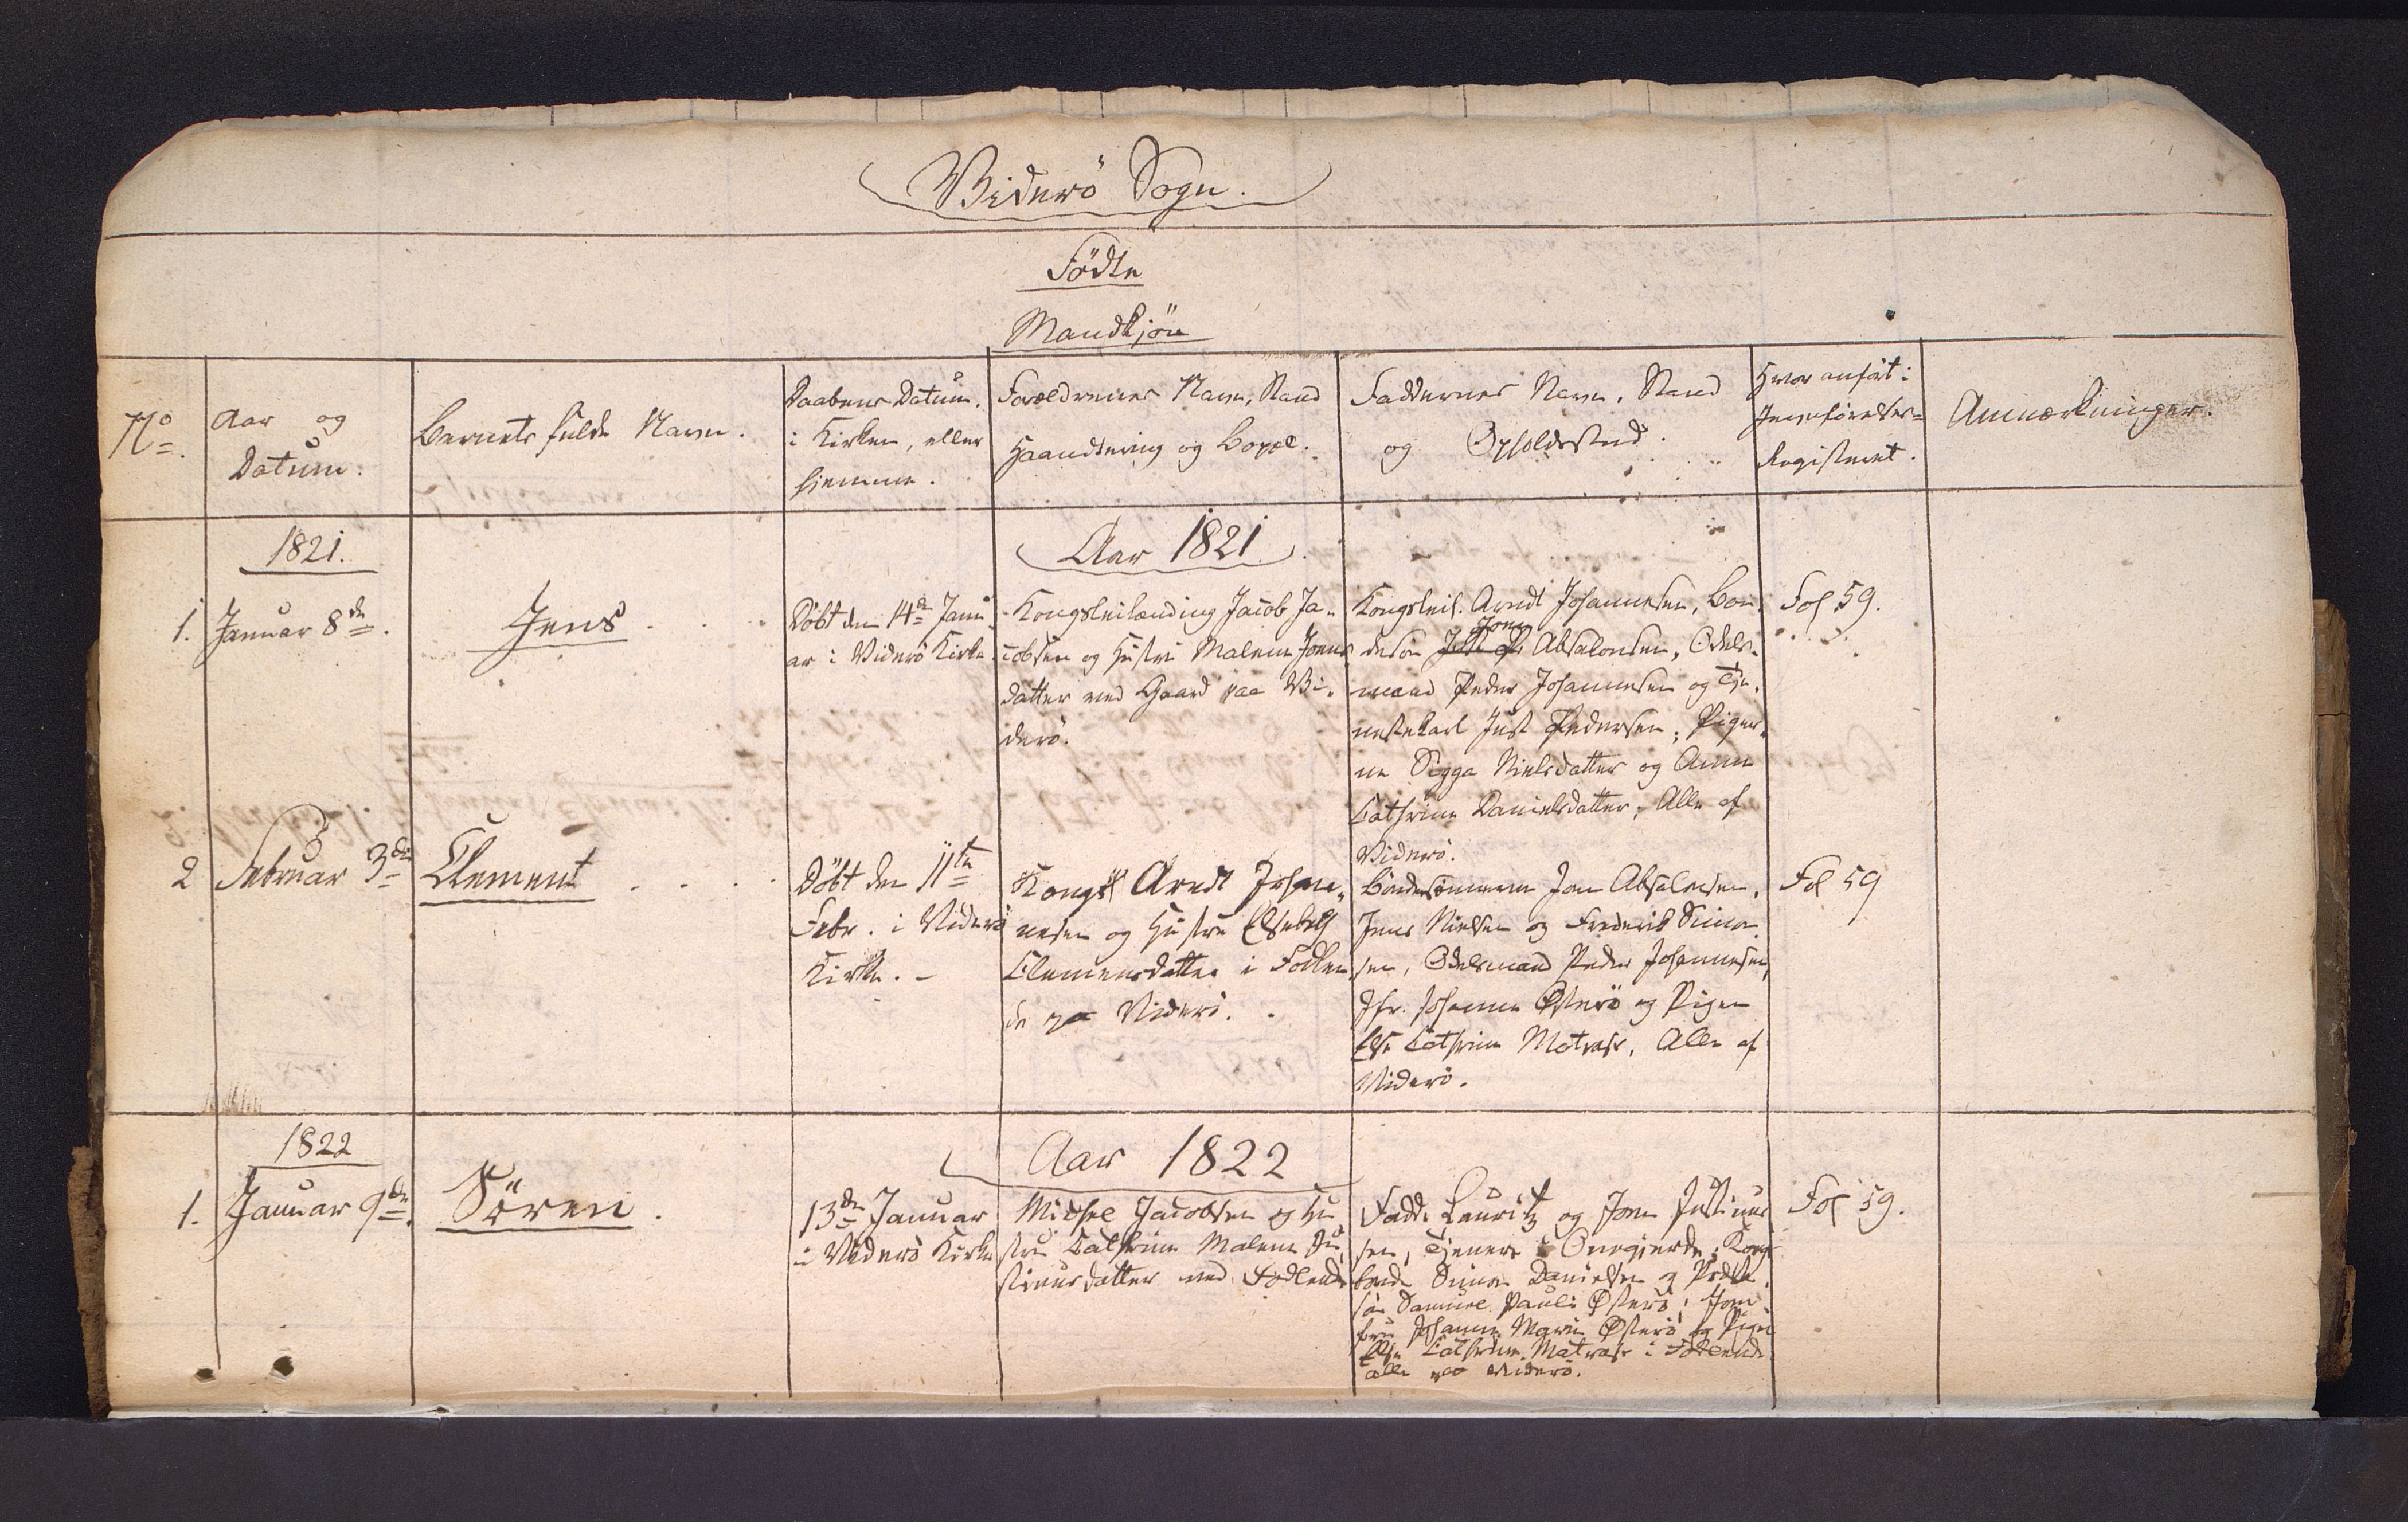 Viderö Sogn.
Födte
Mandkjön
No.
Aar og
Datum.
Barnets fulde Navn.
Daabens Datum.
i Kirken, eller
hjemme.
Forældrenes Navn, Stand
Haandtering og Bopæl.
Faddernes Navn, Stand
og Opholdssted.
Hvor anfört i
Jevnförelses-
Registeret.
Anmærkninger.
1821.
Aar 1821.
1.
Januar 8de.
Jens
Döbt den 14de Janu
ar i Viderö Kirke.
Kongsleilænding Jacob Ja-
cobsen og Hustru Malene Joens
datter ved Gaard paa Vi-
derö.
Kongsleil. Arndt Johannesen, Bon-
desön Jone Absalonsen, Odels-
mand Peder Johannesen og Tje-
nestekarl Just Pedersen; Piger-
ne Sigga Nielsdatter og Anne
Cathrine Danielsdatter; Alle af
Viderö.
Fol 59.
2
Februar 3die
Clement
Döbt den 11te
Febr. i Viderö
Kirke.
Kongsl Arndt Johan-
nesen og Hustru Elsebeth
Clemensdatter i Ördlen-
de paa Viderö.
Böndesönnerne Jon Absalonsen,
Jens Nielsen og Frederik Simon-
sen, Odelsmand Peder Johannesen,
Jfr. Johanne Österö og Pigen
Else Cathrine Matras. Alle af
Viderö.
Fol 59
1822
Aar 1822
1.
Januar 9de.
Sören.
13de Januar
i Viderö Kirke
Michel Jacobsen og Hu
stru Cathrine Malene Ju
stinusdatter ved
Fadd: Lauritz og Jon Justinus
sen, Tjenere i Onagjerde; Kongs
bonde Simon Danielsen og
sön Samuel Pauli Österö; Jom
fru Johanne Marie Österö og Pigen
Else Cathrine Matras i
alle paa Viderö.
Fol 59.